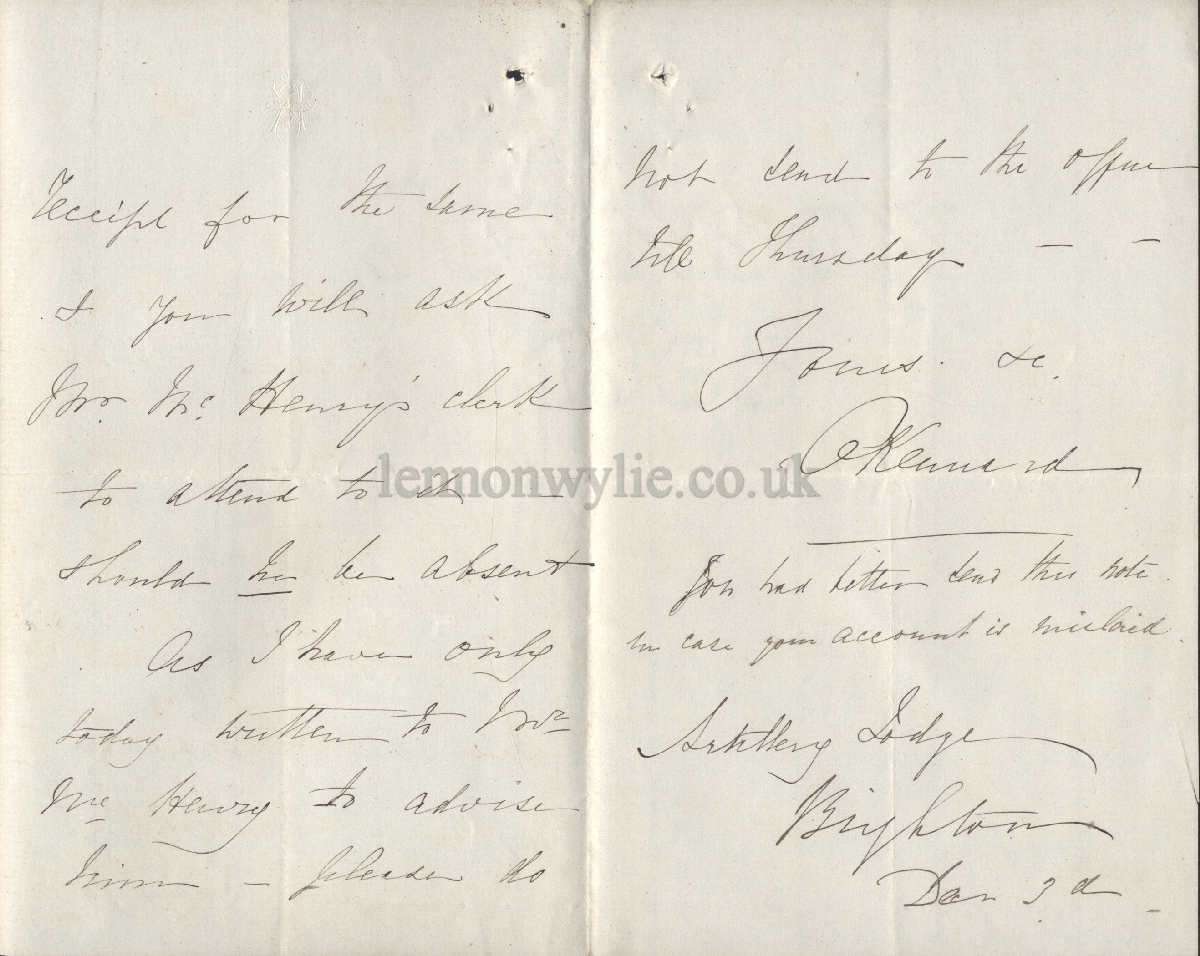 receipt for the same
& you will ask
Mr. Mc. Henry's clerk
to attend to it —
should he be absent
As I have only
today written to Mr
Mc Henry to advise
him — please do
not send to the office
till Thursday — —
Yours &c.
Kennard
You had better send this note
in case your account is mislaid.
Artillery Lodge
Brighton
Dec 3d
lennonwylie.co.uk